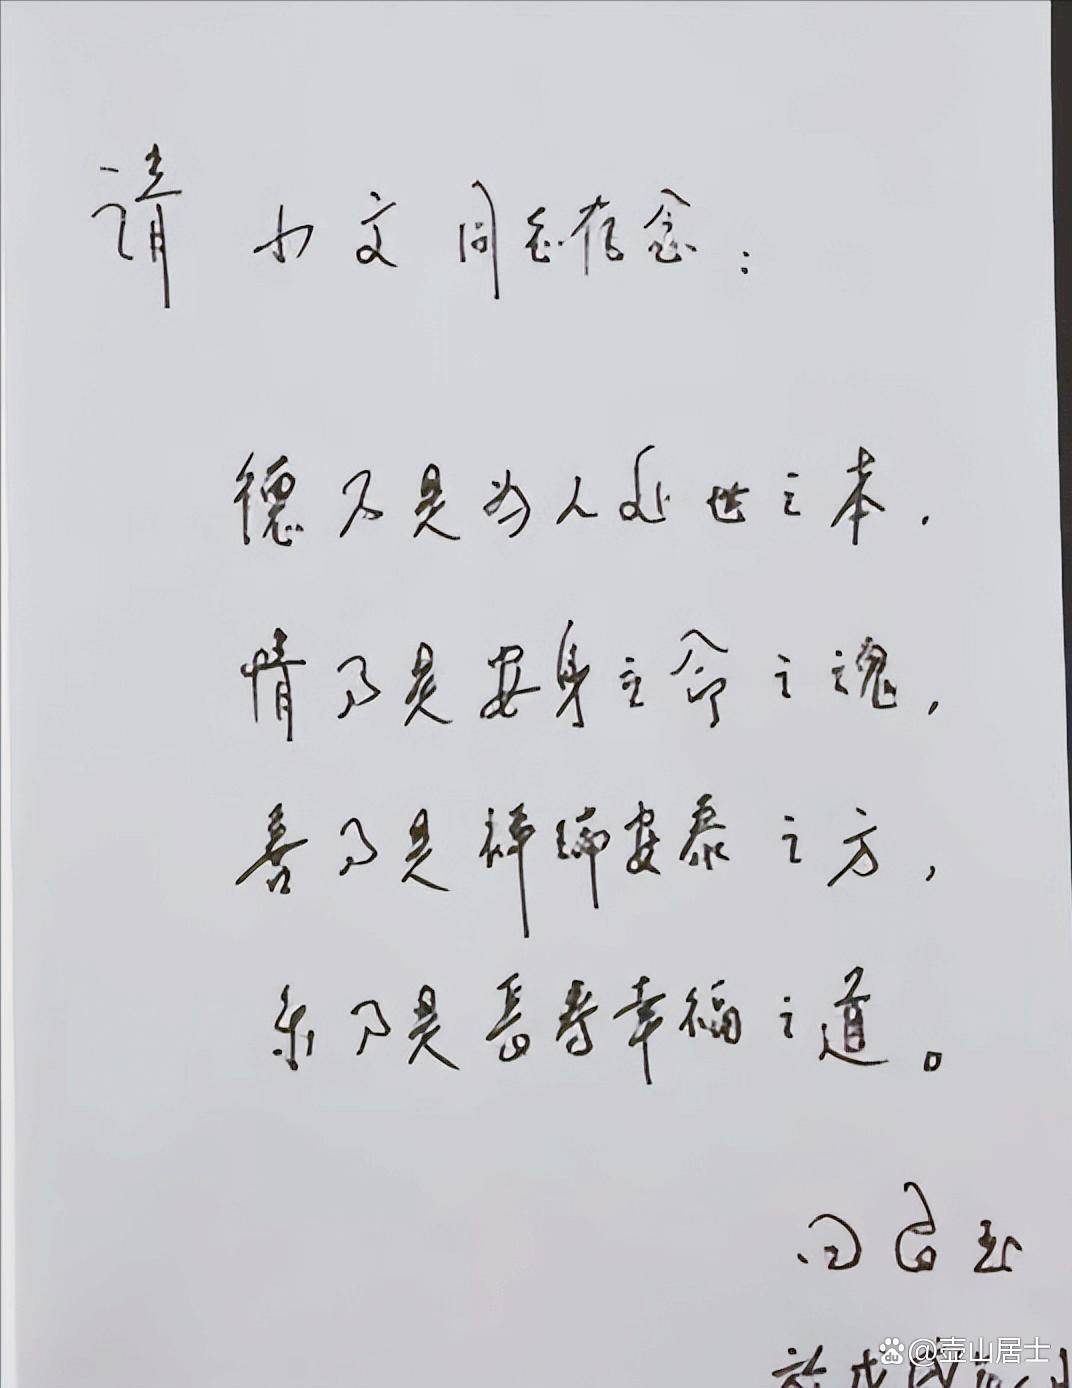 请 小文同志存念：
德乃是为人处世之本，
情乃是安身立命之魂，
善乃是祥瑞安泰之方，
乐乃是长寿幸福之道。
@壶山居士